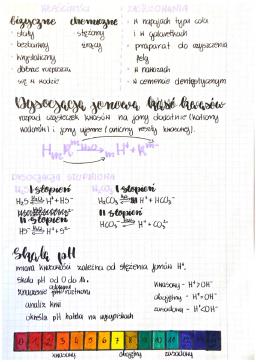 WŁAŚCIWOŚCI
ZASTOSOWANIA
fizyczne chemiczne
• stały
• bezbarwny
• krystaliczny
• dobrze rozpuszcza
się w wodzie
• stężony
żrący
• w napojach typu cola
i w galaretkach
• preparat do czyszczenia
• w nawozach
• w cemencie dentystycznym
Dysocjacja jonowa kwasów
rozpad cząsteczek kwasów na jony dodatnie (kationy
wodoru) i jony ujemne (aniony reszty kwasowej).
DYSOCJACJA STOPNIOWA
I stopień
H₂S H₂O H⁺ + HS⁻
II stopień
HS⁻ H₂O H⁺ + S²⁻
H₂CO₃
I stopień
H₂CO₃ H₂O H⁺ + HCO₃⁻
II stopień
HCO₃⁻ H₂O H⁺ + CO₃²⁻
Skala pH
miara kwasowości zależna od stężenia jonów H⁺.
skala pH od 0 do 14.
analiza krwi
określa pH
kwasowy - H⁺>OH⁻
obojętny - H⁺=OH⁻
zasadowy - H⁺<OH⁻
0 1 2 3 4 5 6 7 8 9 10 11 12 13 14
kwasowy obojętny zasadowy